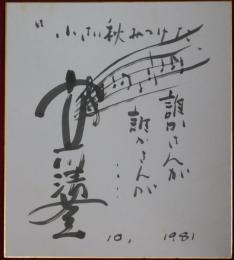 小さい秋みつけた
誰かさんが
誰かさんが
……
10, 1981